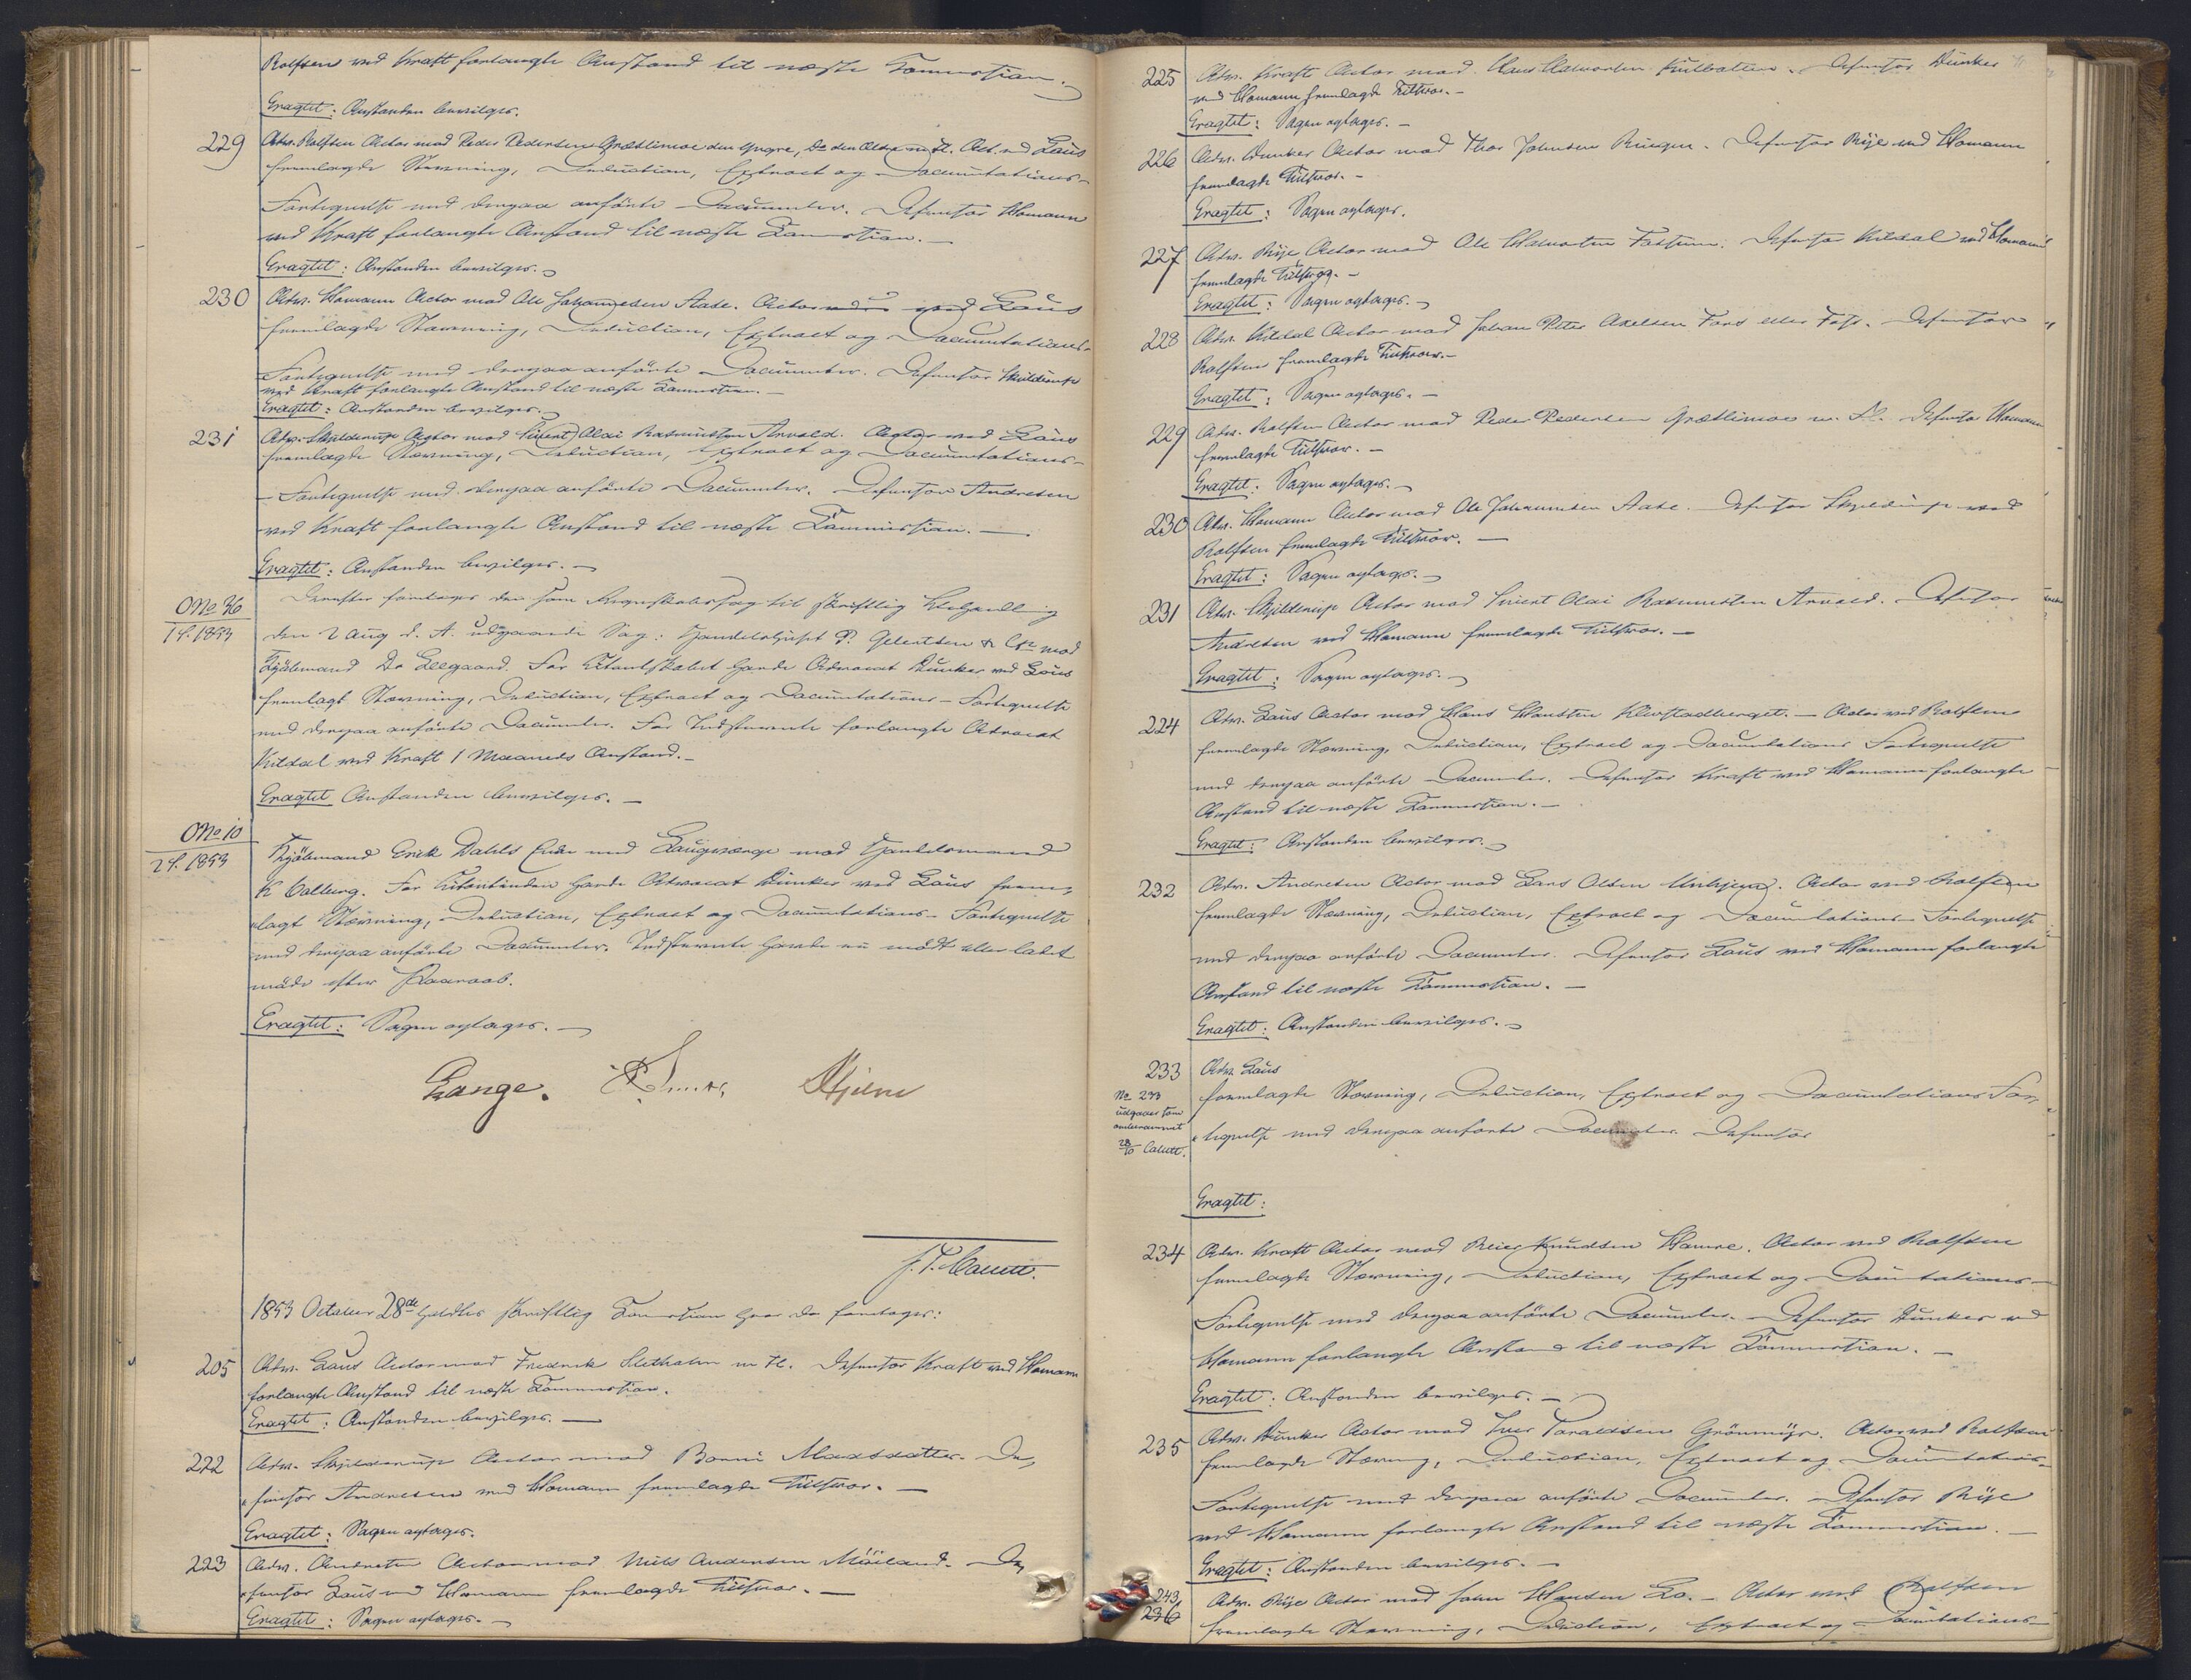 Rolfsen ved Kraft forlangte Anstand til næste Ламmission.
Eragtet: Anstanden bevilges.
229 Adv. Rolfsen Actor mod Peder Pedersen Grætlimoe den Yngre, Do den Ældre m. Fl. Act. ved Laus
fremlagde Stævning, Deduction, Extract og Documentations-
Fortegnelse med derpaa anførte Documenter. Defensor Homann
ved Kraft forlangte Anstand til næste Session.
Eragtet: Anstanden bevilges.
230 Adv. Homann Actor mod Ole Johannesen Aade. Actor ved Laus
fremlagde Stævning, Deduction, Extract og Documentations-
Fortegnelse med derpaa anførte Documenter. Defensor Skjelderup
ved Kraft forlangte Anstand til næste
Eragtet: Anstanden bevilges.
231 Adv. Skjelderup Actor mod Sivert Olai Rasmussen Arvold. Actor ved Laus
fremlagde Stævning, Deduction, Extract og Documentations-
Fortegnelse med derpaa anførte Documenter. Defensor Andresen
ved Kraft forlangte Anstand til næste
Eragtet: Anstanden bevilges.
No 36
1 S. 1853
Derefter foretages den som Regnskabssag til skriftlig Behandling
den 2 Aug d. A. udgaaende Sag: Handelshuset P. Gelertsen & Co mod
Kjøbmand Do Leegaard. For Citantskabet havde Advocat Dunker ved Laus
fremlagt Stævning, Deduction, Extract og Documentations-Fortegnelse
med derpaa anførte Documenter. For Indstevnte forlangte Advocat
Kildal ved Kraft 1 Maaneds Anstand.
Eragtet Anstanden bevilges.
No 10
2 S. 1853
Kjøbmand Erik Dahls Enke med Laugværge mod Handelsmand
K Calberg. For Citantinden havde Advocat Dunker ved Laus frem-
lagt Stævning, Deduction, Extract og Documentations-Fortegnelse
med derpaa anførte Documenter. Indstevnte havde ei mødt eller ladet
møde efter Paaraab.
Eragtet: Sagen optages.
Lange. Hjelm
1853 October 28de holdtes skriftlig hvor da foretages:
205 Adv. Laus Actor mod Fredrik Sletholm m Fl. Defensor Kraft ved Homann
forlangte Anstand til næste
Eragtet: Anstanden bevilges.
222 Adv. Skjelderup Actor mod Maxsdatter. De-
fensor Andresen ved Homann fremlagde Tilsvar.
Eragtet: Sagen optages.
223 Adv. Andresen Actor mod Niels Andersen Möiland. De-
fensor Laus ved Homann fremlagde Tilsvar.
Eragtet: Sagen optages.
225 Adv. Kraft Actor mod Claus Halvorsen Defensor Dunker
ved Homann fremlagde Tilsvar.
Eragtet: Sagen optages.
226 Adv. Dunker Actor mod Thor Johnsen Defensor Rije ved Homann
fremlagde Tilsvar.
Eragtet: Sagen optages.
227 Adv. Rije Actor mod Ole Halvorsen Defensor Kildal ved Homann
fremlagde Tilsvar.
Eragtet: Sagen optages.
228 Adv. Kildal Actor mod Johan Peter Axelsen Fors eller Foss. Defensor
Rolfsen fremlagde Tilsvar.
Eragtet: Sagen optages.
229 Adv. Rolfsen Actor mod Peder Pedersen Grætlimoe m. Fl. Defensor Homann
fremlagde Tilsvar.
Eragtet: Sagen optages.
230 Adv. Homann Actor mod Ole Johannesen Aade. Defensor Skjelderup ved
Rolfsen fremlagde Tilsvar.
Eragtet: Sagen optages.
231 Adv. Skjelderup Actor mod Sivert Olai Rasmussen Arvold. Defensor
Andresen ved Homann fremlagde Tilsvar.
Eragtet: Sagen optages.
224 Adv. Laus Actor mod Hans Hansen Klevstadberget. Actor ved Rolfsen
fremlagde Stævning, Deduction, Extract og Documentations Fortegnelse
med derpaa anførte Documenter. Defensor Kraft ved Homann forlangte
Anstand til næste
Eragtet: Anstanden bevilges.
232 Adv. Andresen Actor mod Lars Olsen Actor ved Rolfsen
fremlagde Stævning, Deduction, Extract og Documentations-Fortegnelse
med derpaa anførte Documenter. Defensor Laus ved Homann forlangte
Anstand til næste
Eragtet: Anstanden bevilges.
233 Adv. Laus
No 233
udgaaer som
fremlagde Stævning, Deduction, Extract og Documentations For-
tegnelse med derpaa anførte Documenter. Defensor
Eragtet:
234 Adv. Kraft Actor mod Reier Knudsen Hamre. Actor ved Rolfsen
fremlagde Stævning, Deduction, Extract og Documentations-
Fortegnelse med derpaa anførte Documenter. Defensor Dunker ved
Homann forlangte Anstand til næste
Eragtet: Anstanden bevilges.
235 Adv. Dunker Actor mod Iver Taraldsen Grönmyr. Actor ved Rolfsen
fremlagde Stævning, Deduction, Extract og Documentations-
Fortegnelse med derpaa anførte Documenter. Defensor Rije
ved Homann forlangte Anstand til næste
Eragtet: Anstanden bevilges.
243
236 Adv. Rije Actor mod John Hansen Lo. Actor ved Rolfsen
fremlagde Stævning, Deduction, Extract og Documentations-